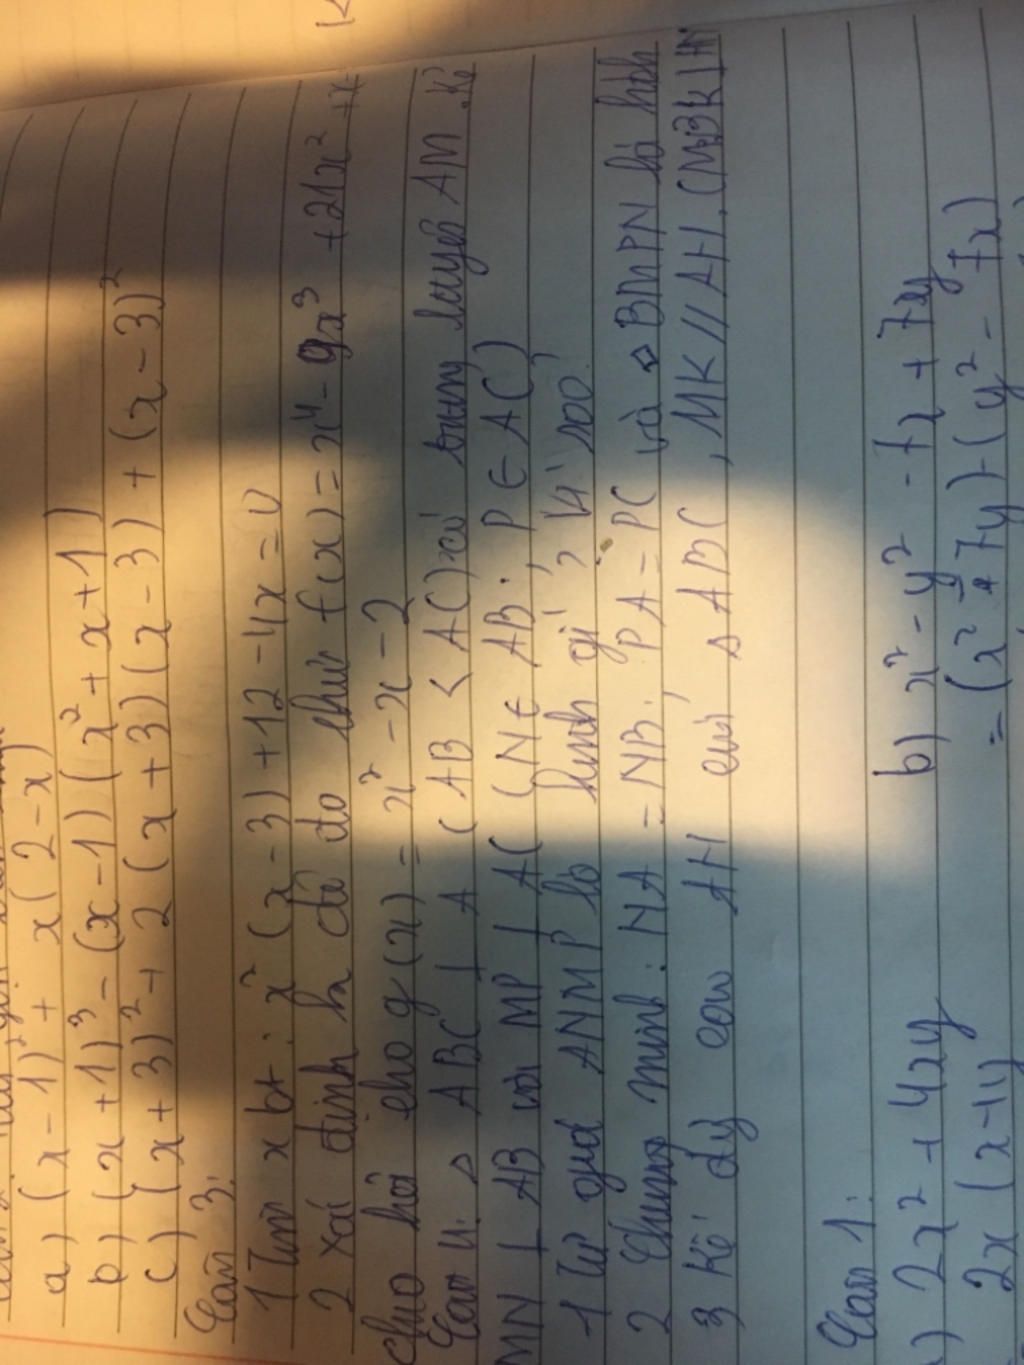 a) (x - 1)² + x(2 - x)
b) (x + 1)³ - (x - 1)(x² + x + 1)
c) (x + 3)² + 2(x + 3)(x - 3) + (x - 3)²
Câu 3:
1 Tìm x bt: x²(x - 3) + 12 - 4x = 0
2 Xác định h đó do thức f(x) = x⁴ - 9x³ + 21x² + x
cho g(x) = x² - x - 2
Câu 4. △ ABC ⊥ A (AB < AC) có trung tuyến AM. Kẻ
MN ⊥ AB và MP ⊥ AC (N ∈ AB; P ∈ AC)
1 Tứ giá ANMP là hình gì? Vì sao?
2 Chứng minh: NA = NB; PA = PC và ◇ BMPN là hbh
3 Kẻ đg cao AH của △ ABC, MK // AH,
Câu 1:
) 2x² + 4xy b) x² - y² - 7x + 7y
2x (x + y) = (x² + 7y) + (y² - 7x)